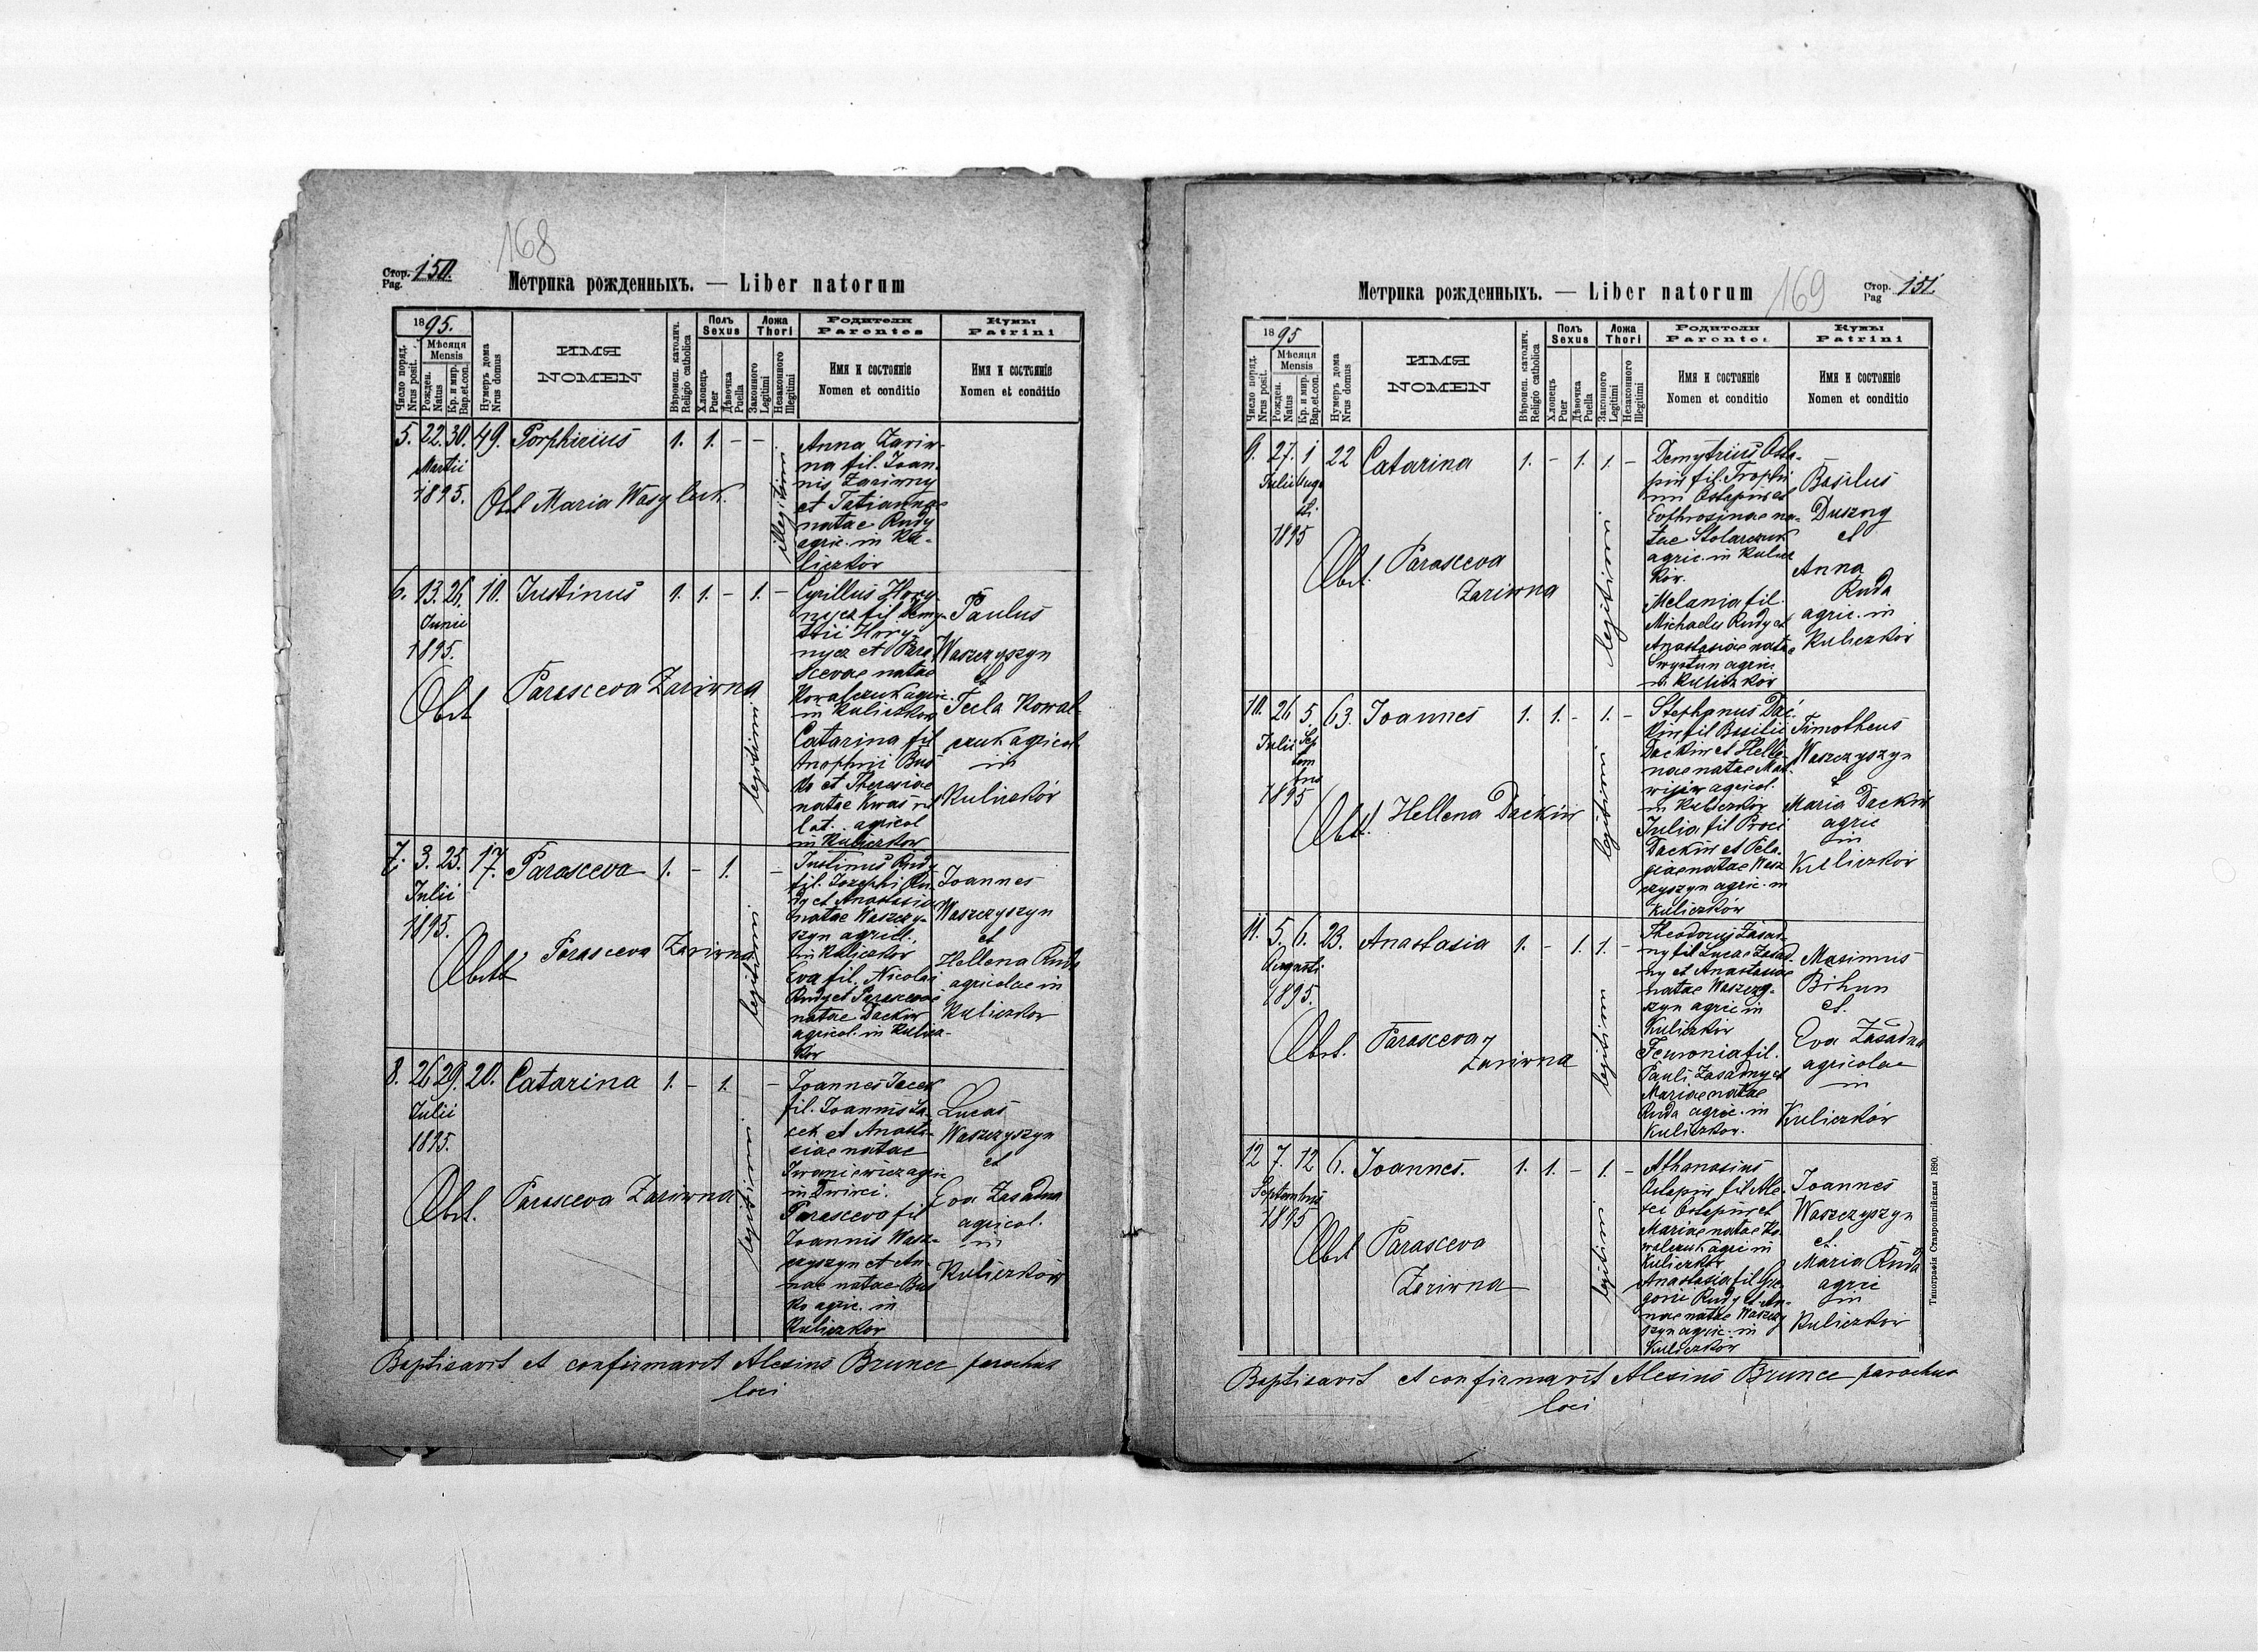 168
Стор. Pag. 150.
Метрика рожденныхъ. — Liber natorum
1895.
Число поряд. Nrus posit.
Мѣсяця Mensis
Рожден. Natus
Кр. и мир. Bap.et.con.
Нумеръ дома Nrus domus
ИМЯ
NOMEN
Вѣроисп. католич. Religio catholica
Полъ Sexus
Хлопецъ Puer
Дѣвочка Puella
Ложа Thori
Законного Legitimi
Незаконного Illegitimi
Родители
Parentes
Имя и состояніе
Nomen et conditio
Кумы
Patrini
Имя и состояніе
Nomen et conditio
5. 22. 30. 49. Porphirius 1. 1. – –
Martii
1895.
Obst. Maria Wasyluk
illegitimi
Anna Zariw-
na fil. Joan-
nis Zariwny
et Tatiannae
natae Rudy
agric. in Ku-
liczkow
6. 13. 26. 10. Justinus 1. 1. – 1. –
Junii
1895.
Obst Parasceva Zariwna
legitimi
Cyrillus Hory-
nycz fil Demy-
trii Hory-
nycz et Para
scevae natae
Kowalczuk agric.
in Kuliczkow
Catarina fil
Anophrii Bus
ko et Theresiae
natae Kwaś rit
lat. agricol
in Kuliczkow
Paulus
Waszczyszyn
et
Tecla Kowal-
czuk agricol
in
Kuliczkow
7. 3. 25. 17. Parasceva 1. – 1. –
Julii
1895.
Obstt Parasceva Zariwna
legitimi
Justinus Rudy
fil. Josephi Ru-
dy et Anastasiae
natae Waszczy-
szyn agricl.
in Kuliczkow
Eva fil. Nicolai
Rudy et Parascevae
natae Dackiw
agricol. in Kulicz-
kow
Joannes
Waszczyszyn
et
Hellena Ruda
agricolae in
Kuliczkow
8. 26 29. 20. Catarina 1. – 1. –
Julii
1895.
Obst. Parasceva Zariwna
legitimi
Joannes Jacek
fil. Joannis Ja-
cek et Anasta-
siae natae
Iwaniewicz agric
in Dwirci.
Parasceva fil
Joannis Wasz-
czyszyn et An-
nae natae Bus
ko agric. in
Kuliczkow
Lucas
Waszczyszyn
et
Eva Zasadna
agricol.
in
Kuliczkow
Baptisavit et confirmavit Alexius Brunec parochus
loci
169
Стор. Pag 151.
Метрика рожденныхъ. — Liber natorum
1895
Число поряд. Nrus posit.
Мѣсяця Mensis
Рожден. Natus
Кр. и мир. Bap.et.con.
Нумеръ дома Nrus domus
ИМЯ
NOMEN
Вѣроисп. католич. Religio catholica
Полъ Sexus
Хлопецъ Puer
Дѣвочка Puella
Ложа Thori
Законного Legitimi
Незаконного Illegitimi
Родители
Parentes
Имя и состояніе
Nomen et conditio
Кумы
Patrini
Имя и состояніе
Nomen et conditio
9. 27. 1 22 Catarina 1. – 1. 1. –
Julii Augu
sti
1895
Obst. Parasceva
Zariwna
legitimi
Demytrius Osta-
piw fil. Trophi
mi Ostapiw et
Evphrosinae na-
tae Stolarczuk
agric. in Kulicz
kow.
Melania fil.
Michaelis Rudy et
Anastasiae natae
Swystun agric.
in Kuliczkow
Basilus
Duszny
et
Anna
Ruda
agric. in
Kuliczkow
10. 26 5. 63. Joannes 1. 1. – 1. –
Julii Sep
tem
bris
1895
Obst. Hellena Dackiw
legitimi
Stephanus Dac
kiw fil Basilii
Dackiw et Helle
nae natae Mat-
wijiw agricol.
in Kuliczkow
Julia fil Proci
Dackiw et Pela
giae natae Wasz
czyszyn agric. in
Kuliczków
Timotheus
Waszczyszyn
et
Maria Dackiw
agric
in
Kuliczkow
11. 5. 6. 23. Anastasia 1. – 1 1. –
Augusti
1895.
Obst. Parasceva
Zariwna
legitimi
Theodorus Zasad-
ny fil Lucae Zasad-
ny et Anastasiae
natae Waszczy-
szyn agric in
Kuliczkow
Fewronia fil.
Pauli Zasadny et
Mariae natae
Ruda agric. in
Kuliczkow.
Maximus
Bihun
et.
Eva Zasadna
agricolae
in
Kuliczków
12 7. 12 6. Joannes. 1. 1. – 1. –
Septembris
1895
Obst Parasceva
Zariwna
legitimi
Athanasius
Ostapiw fil Ale-
xei Ostapiw et
Mariae natae Ko-
walczuk agri in
Kuliczkow
Anastasia fil Gre-
gorii Rudy et An-
nae natae Waszczy
szyn agric. in
Kuliczkow
Joannes
Waszczyszyn
et.
Maria Ruda
agric
in
Kuliczkow
Baptisavit et confirmavit Alexius Brunec parochus
loci
Типографія Ставропигійская 1890.